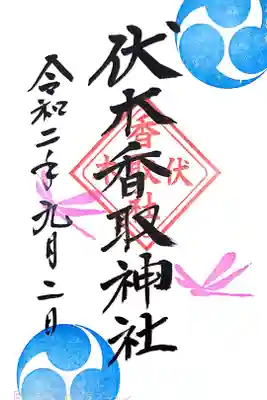 伏木香取神社
令和二年九月二日
伏
香